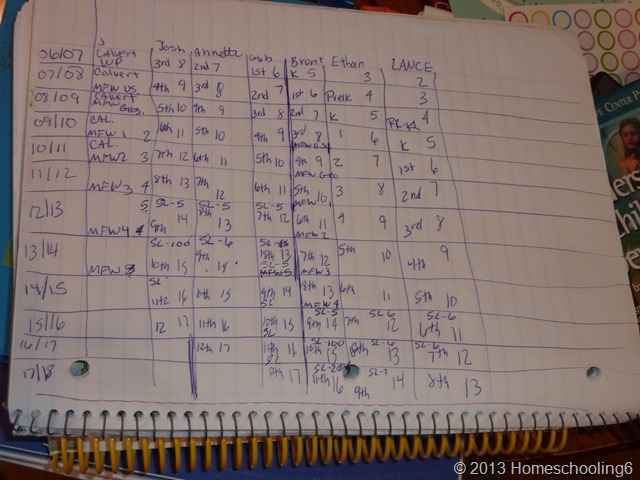 Josh Annette Gabb Bront Ethan LANCE
06/07 Calvert 3rd 8 2nd 7 1st 6 K 5 3 2
WP
07/08 Calvert 4th 9 3rd 8 2nd 7 1st 6 PreK 4 3
MFW US.
08/09 Calvert 5th 10 4th 9 3rd 8 2nd 7 K 5 4
MFW Geo.
09/10 CAL. 6th 11 5th 10 4th 9 3rd 8 1 6 K 5
MFW 1 2
10/11 CAL. 7th 12 6th 11 5th 10 4th 9 2 7 1st 6
MFW2 3 MFW Geo
11/12 8th 13 7th 12 6th 11 5th 10 3 8 2nd 7
MFW3 4 MFW1
12/13 5 SL-5 SL-5 SL-5
9th 14 8th 13 7th 12 6th 11 4 9 3rd 8
MFW4 MFW2
13/14 SL-100 SL-6
10th 15 9th 14 13 7th 12 5th 10 4th 9
SL-5
MFW5 MFW3
14/15 SL
11th 16 10th 15 9th 14 8th 13 6th 11 5th 10
SL MFW4
15/16 SL-5 SL-6 SL-6
12 17 11th 16 10th 15 9th 14 7th 12 6th 11
SL
16/17 SL-100 SL-6 SL-6
12th 17 11th 16 10th 15 8th 13 7th 12
SL
17/18 SL-200 SL-7
17 11th 16 9th 14 8th 13
© 2013 Homeschooling6